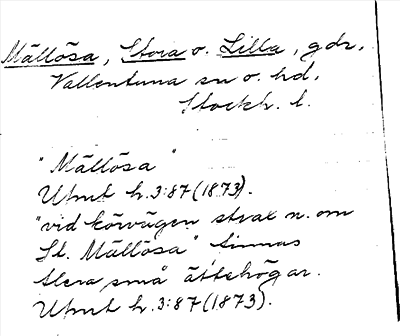 Mällösa, Stora o. Lilla, gdr,
Vallentuna sn o. hd,
Stockh. l.
"Mällösa"
Upmt h. 3:87 (1873).
"vid körvägen strax n. om
St. Mällösa" finnas
flera små ättehögar.
Upmt h. 3:87 (1873).